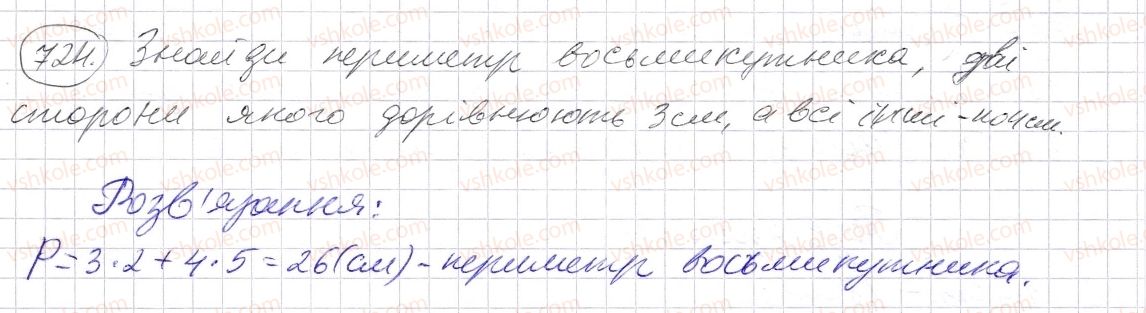 724. Знайди периметр восьмикутника, дві
сторони якого дорівнюють 3см, а всі інші - по 4см.
Розв'язання:
P = 3·2 + 4·5 = 26 (см) - периметр восьмикутника.